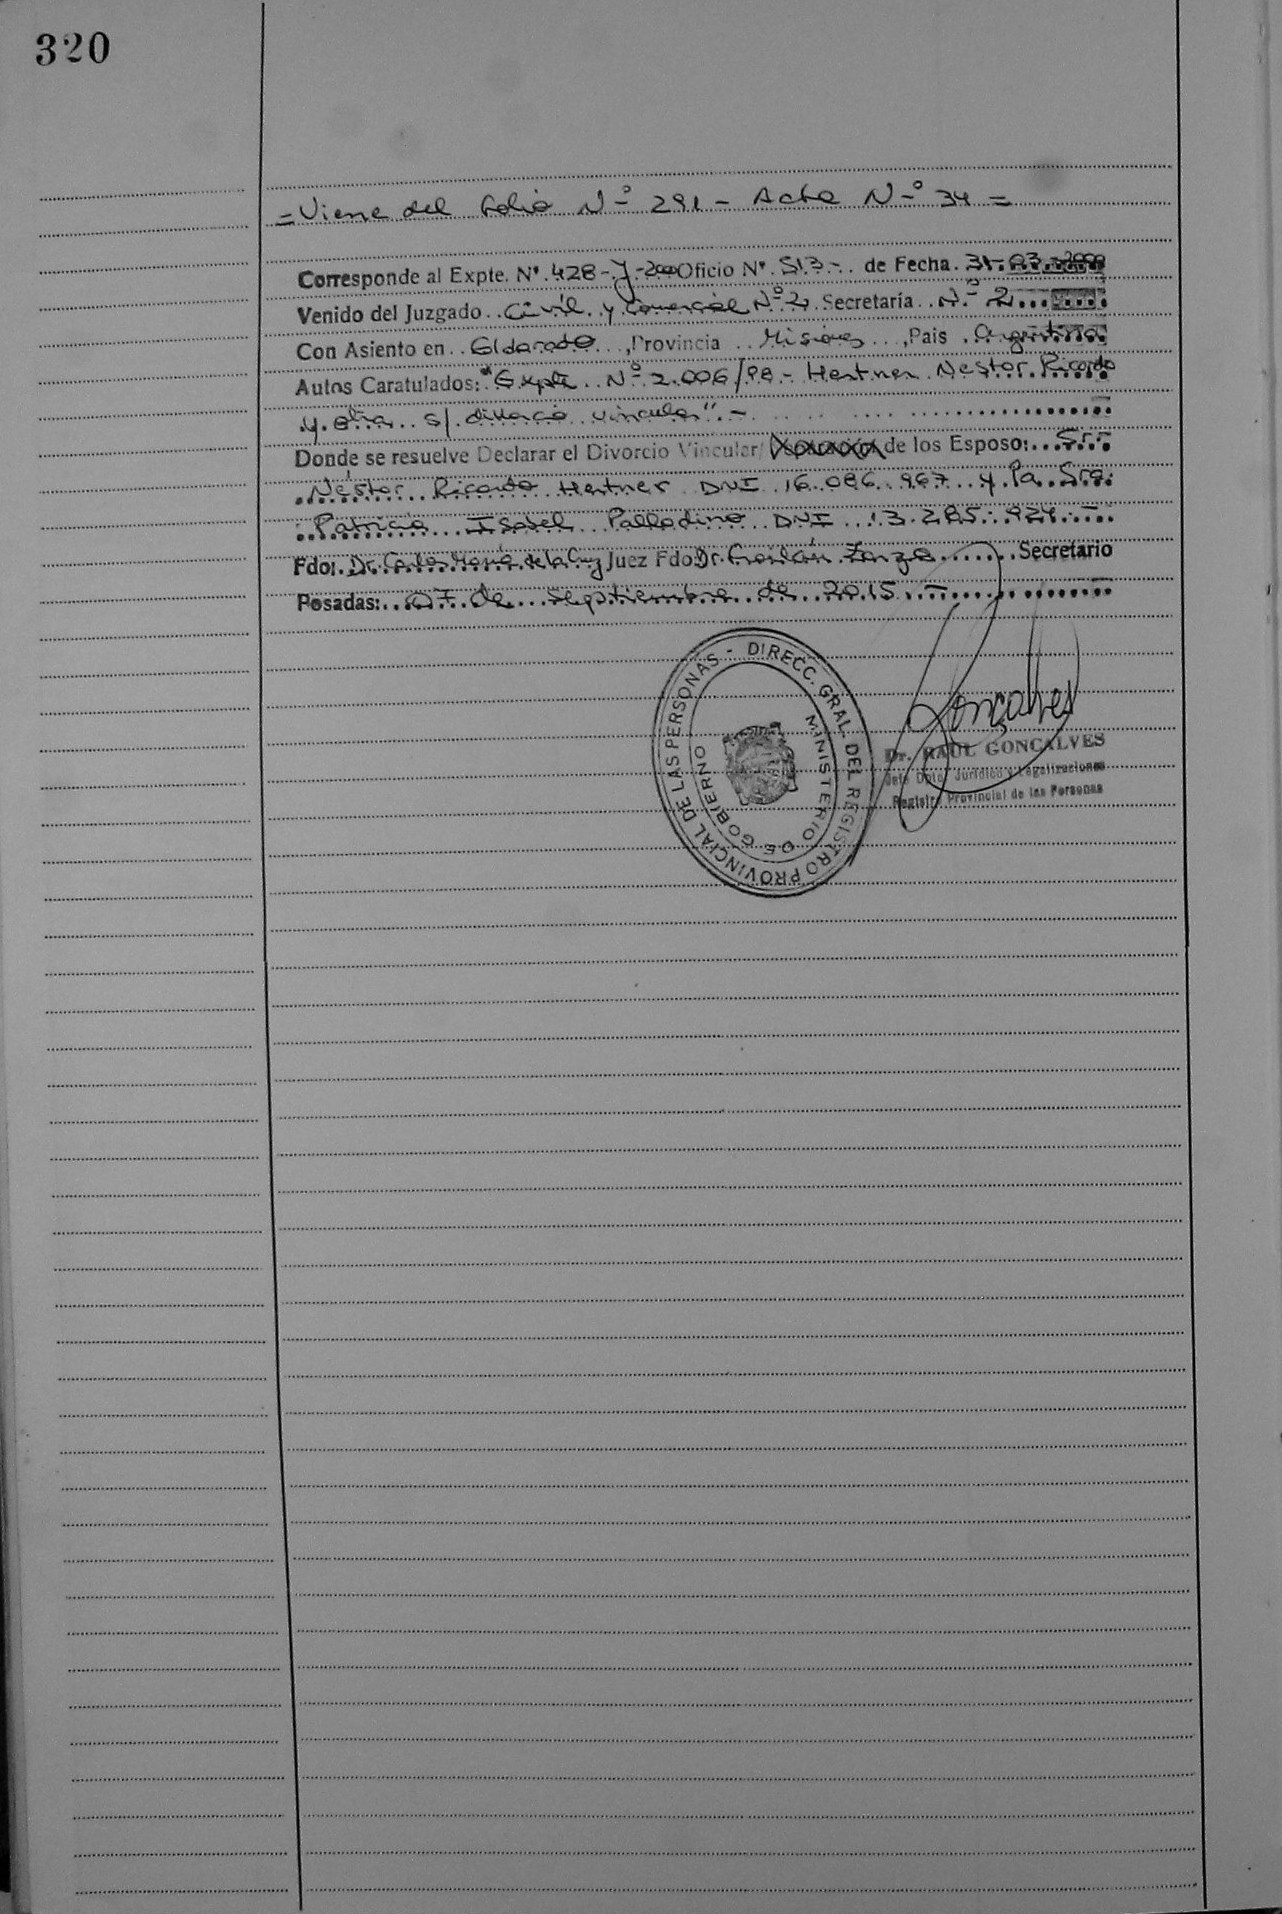 320
= Viene del folio N° 291 - Acta N° 34 =
Corresponde al Expte. N° 428-J-2000 Oficio N° 513-. de Fecha 31-03-2000
Venido del Juzgado Civil y Comercial N° 2 Secretaría N° 2
Con Asiento en Eldorado, Provincia Misiones, País Argentina
Autos Caratulados: "Expte N° 2.006/98 - Hertner Nestor Ricardo
y otra s/ divorcio vincular".-
Donde se resuelve Declarar el Divorcio Vincular/ de los Esposo: Sr.
Néstor Ricardo Hertner DNI 16.086.967 y la Sra.
Patricia Isabel Palladino DNI 13.285.924.-
Fdo: Dr. Carlos María de la Cruz Juez Fdo: Dr. Secretario
Posadas: 07 de septiembre de 2015.-
DIRECC. GRAL. DEL REGISTRO PROVINCIAL DE LAS PERSONAS -
MINISTERIO DE GOBIERNO
Gonçalves
Dr. RAUL GONCALVES
Jefe Dpto. Jurídico y Legalizaciones
Registro Provincial de las Personas